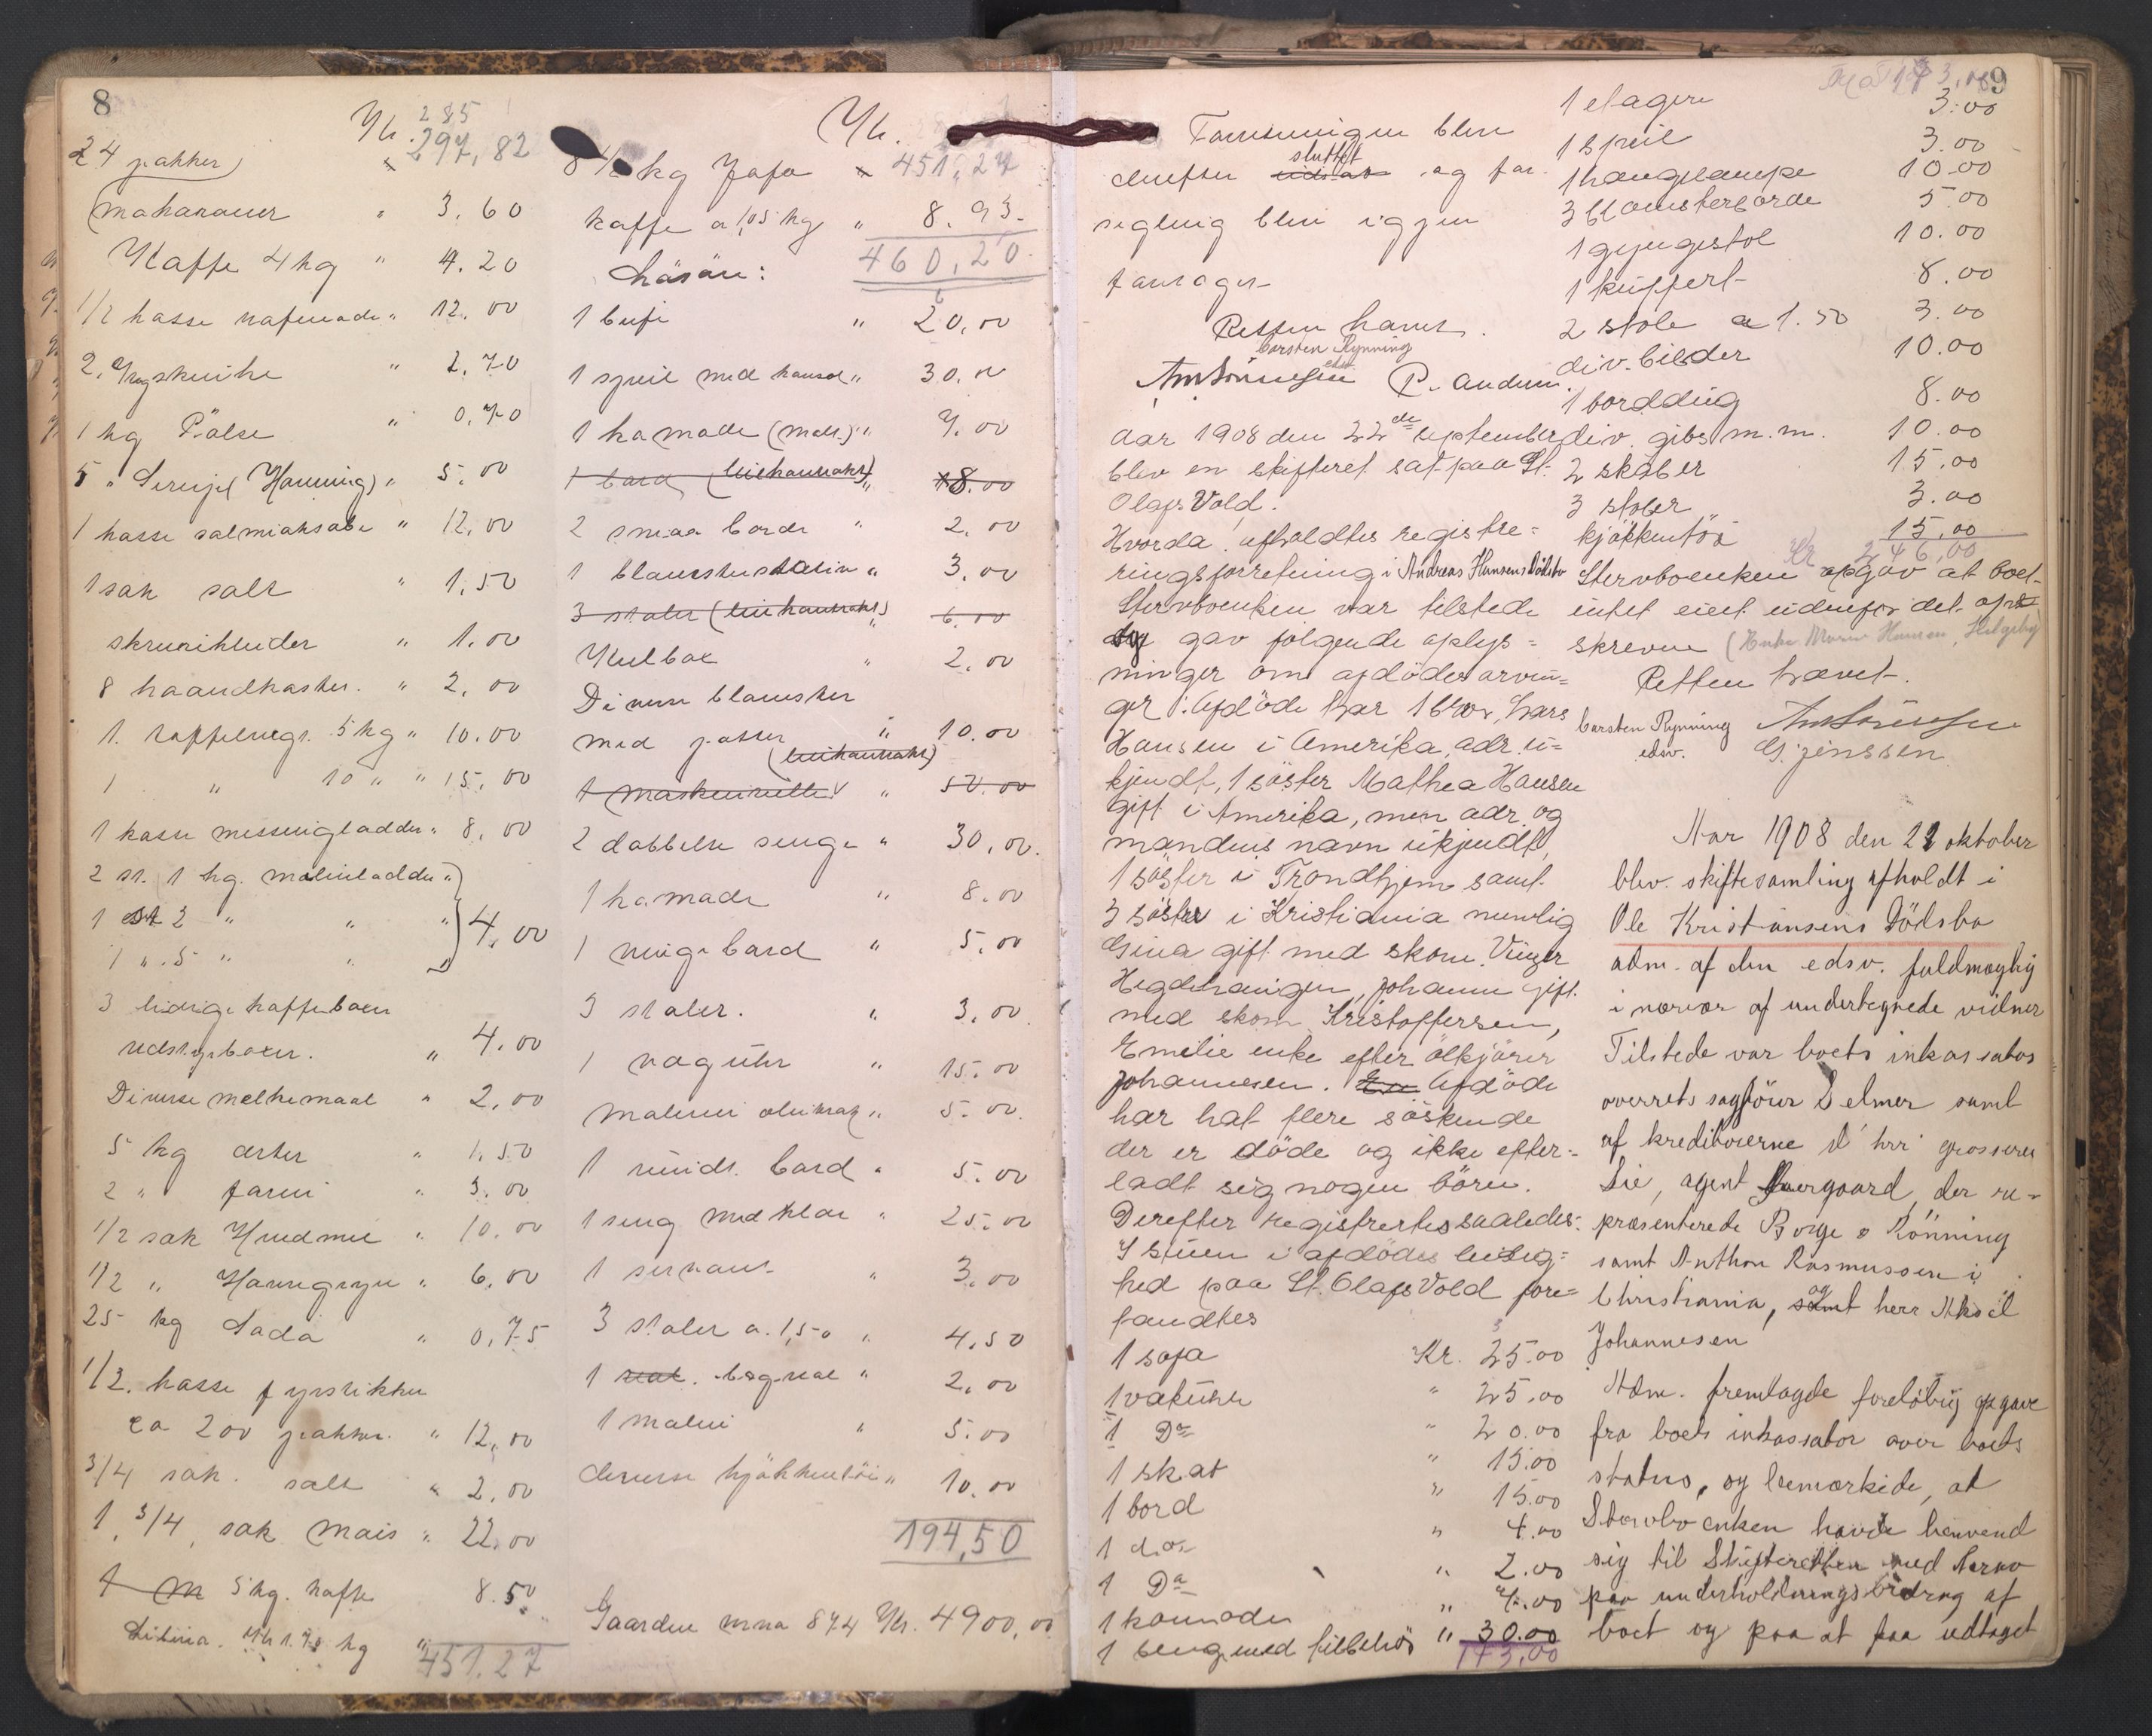 8
Kr.
285
297,82
24 pakker
makaroner " 3.60
Kaffe 4 kg " 4.20
1/2 kasse rafinade " 12.00
2 " 2.70
1 kg Pölse " 0.70
5 " Sennep (Honning) " 5.00
1 kasse salmiaksæbe " 12.00
1 sæk salt " 1.50
skurekluder " 1.00
8 haandkoster. " 2.00
1. 5 kg " 10.00
1 " 10 " " 15.00
1 kasse messinglodder " 8.00
2 st. 1 kg. "
1 st 2 " " " 4.00
1 " 5 " " "
3 kaffe
4.00
Diverse melkemaal " 2.00
5 kg erter " 1.50
2 " farin " 3.00
1/2 sæk Hvedmel " 10.00
1/2 " Havregryn " 6.00
25 kg Soda " 0.75
1/2. kasse fyrstikker
ca 200 pakker. " 12.00
3/4 sæk. salt " 2.00
1. 3/4 sæk mais " 22.00
5 kg. kaffe 8.50
kg "
451.27
Kr.
8 1/2 kg Java 451,27
kaffe a 1,05 kg " 8.93
460,20
Lösöre:
1 bufe " 20,00
1 speil med konsol " 30.00
1 komode (malt.) " 7.00
1 bord 8.00
2 smaa borde " 2.00
1 blomster " 3.00
3 stoler 6.00
Kulbox " 2.00
Diverse blomster
med potter " 10.00
1 maskin " 50.00
2 dobbelte senge " 30,00.
1 komode " 8.00
1 bord " 5.00
3 stoler. " 3.00
1 vægúhr " 15.00
Maleri oljetryk " 5.00.
1 rúndt bord " 5.00
1 seng med klær " 25.00
1 servant " 3.00
3 stoler a. 1,50 " 4.50
1 " 2.00
1 maleri " 5.00
diverse kjökkentöi " 10.00
194,50
Gaarden mno 874 Kr. 4900,00
9
Forretningen blev
sluttet
derefter og for-
segling blev igjen
foretaget
Retten hævet.
Carsten Rynning
edsv.
P. Andersen.
Aar 1908 den 22de september
blev en skifteret sat paa St.
Olafs Vold.
Hvorda afholdtes registre=
ringsforretning i Andreas Hansens Dödsbo
Stervboenken var tilstede
og gav fölgende oplys=
ninger om afdödes arvin=
ger: Afdöde har 1 bror, Lars
Hansen i Amerika, adr. ú=
kjendt, 1 söster Mathea Hansen
gift i Amerika, men adr. og
mandens navn úkjendt,
1 söster i Trondhjem samt
3 söstre i Kristiania nemlig
Gina gift med skom. Vinger
Hegdehaugen, Johanne gift
med skom Kristoffersen,
Emilie enke efter ölkjörer
Johannesen. Afdöde
har hat flere söskende
der er döde og ikke efter=
ladt sig nogen börn.
Derefter registrertes saaledes:
I stúen i afdödes leilig=
hed paa St. Olafs Vold fore=
fandtes
1 sofa Kr. 25.00
1 vækúhr " 25.00
1 Do " 20.00
1 skat " 15.00
1 bord " 15.00
1 do " 4.00
1 Do " 2.00
1 komode " 7.00
1 seng med tilbehör " 30.00
143,00
1 etagere 3.00
1 speil 3.00
1 hængelampe 10.00
3 blomsterborde 5.00
1 gyngestol 10.00
1 kúffert 8.00
2 stole a 1.50 3.00
div. bilder 10.00
1 borddúg 8.00
div. gibs m.m. 10.00
2 skaber 15.00
3 stoler 3.00
kjökkentöi 15.00
Kr 246,00
Stervboenken opgav at boet
intet eied udenfor det op=
skrevne (Enke Maren Hansen,
Retten hævet.
Carsten Rynning
edsv. G. Jenssen
Aar 1908 den 22 oktober
blev skiftesamling afholdt i
Ole Kristiansens Dödsbo
adm. af den edsv. fuldmægtig
i nærvær af undertegnede vidner
Tilstede var boets inkassator
overretssagförer Selmer samt
af kreditorerne d'hrr grosserer
Lie, agent der re=
præsenterede Borge & Rönning
samt Anthon Rasmussen i
Christiania, og herr Aksel
Johannesen
Adm. fremlagde forelöbig opgave
fra boets inkassator over boets
status, og bemærkede, at
Stervboenken havde henvend
sig til Skifteretten med Krav
paa underholdningsbidrag af
boet og paa at faa udtaget